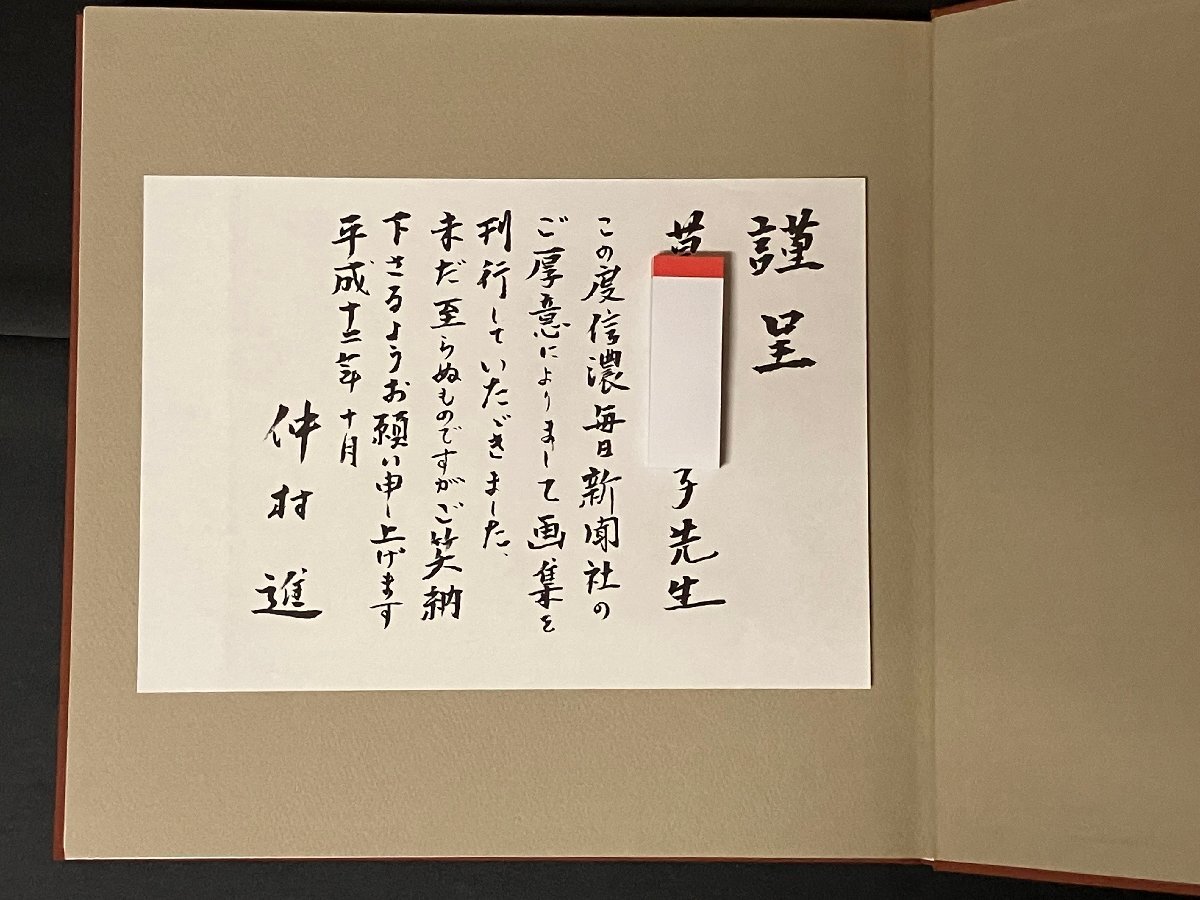 謹呈
子先生
この度信濃毎日新聞社の
ご厚意によりまして画集を
刊行していたゞきました、
未だ至らぬものですがご笑納
下さるようお願い申し上げます
平成十二年十月
仲村進